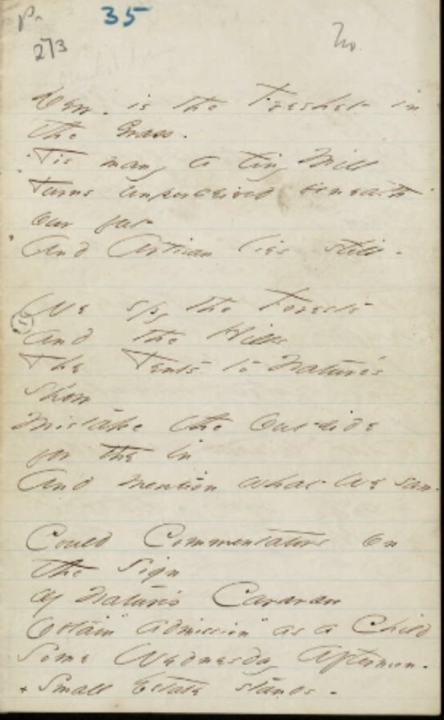 p.
35
273
No.
Dew - is the Freshet in
the Grass -
'Tis many a tiny Mill
Turns unperceived beneath
our feet
And Artisan lies still -
We spy the Forests
And the Hills
The Tents to Nature's
Show
Mistake the Outside
for the in
And mention what we saw -
Could Commentators on
the Sign
Of Nature's Caravan
Obtain "admission" as a Child
Some Wednesday Afternoon -
+ Small Estate